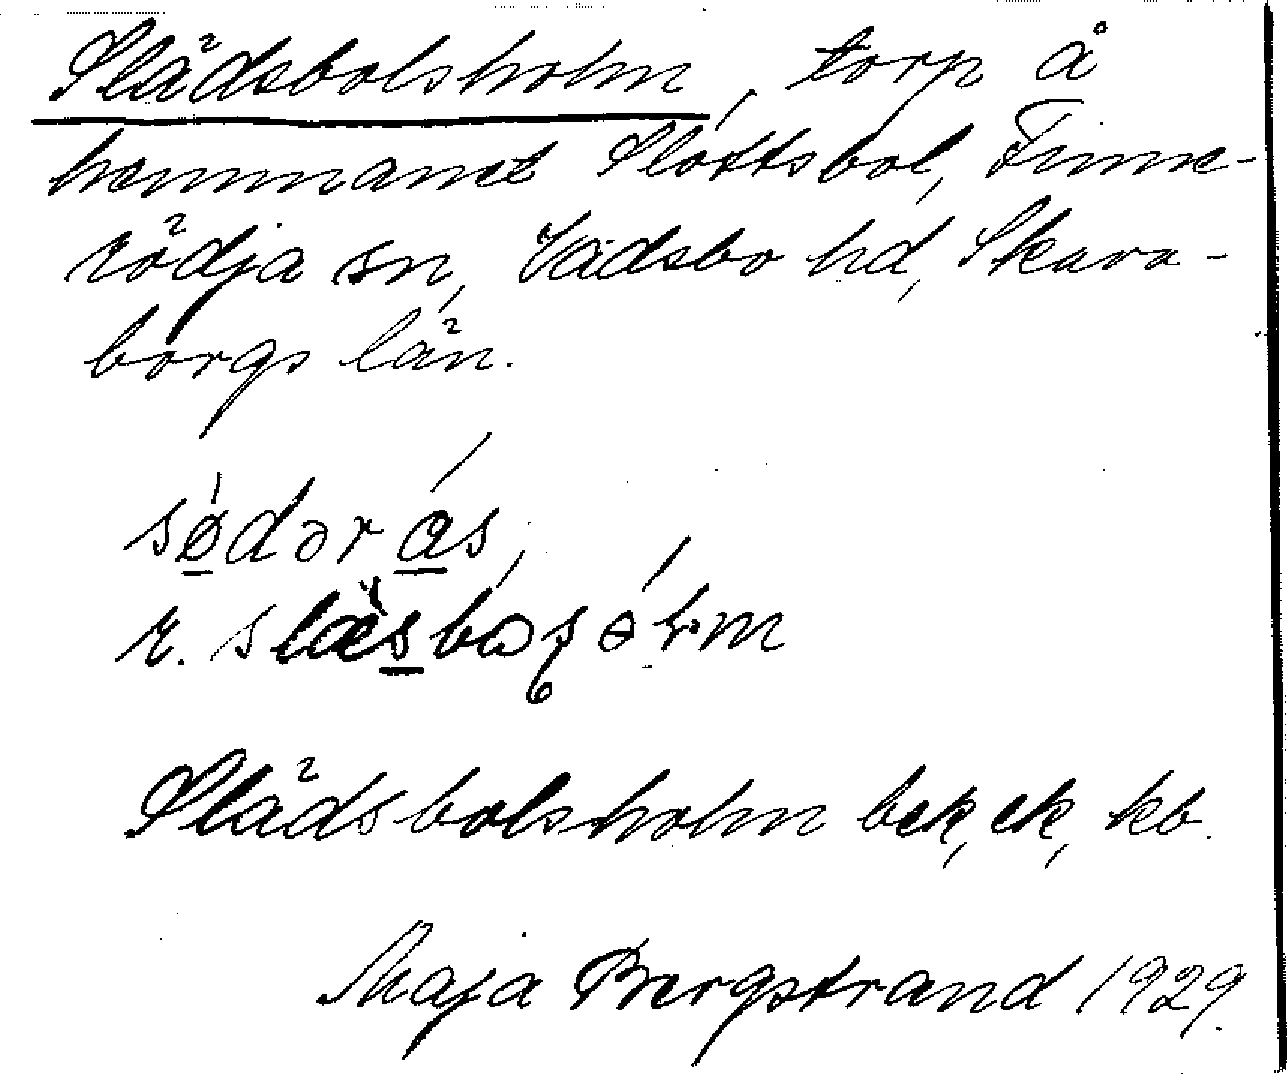 Slädsbolsholm, torp å
hemmanet Slottsbol, Finne-
rödja sn, Vadsbo hd, Skara-
borgs län.
sødəras,
r.
Slädsbolsholm bek, ek, kb.
Maja Bergstrand 1929.